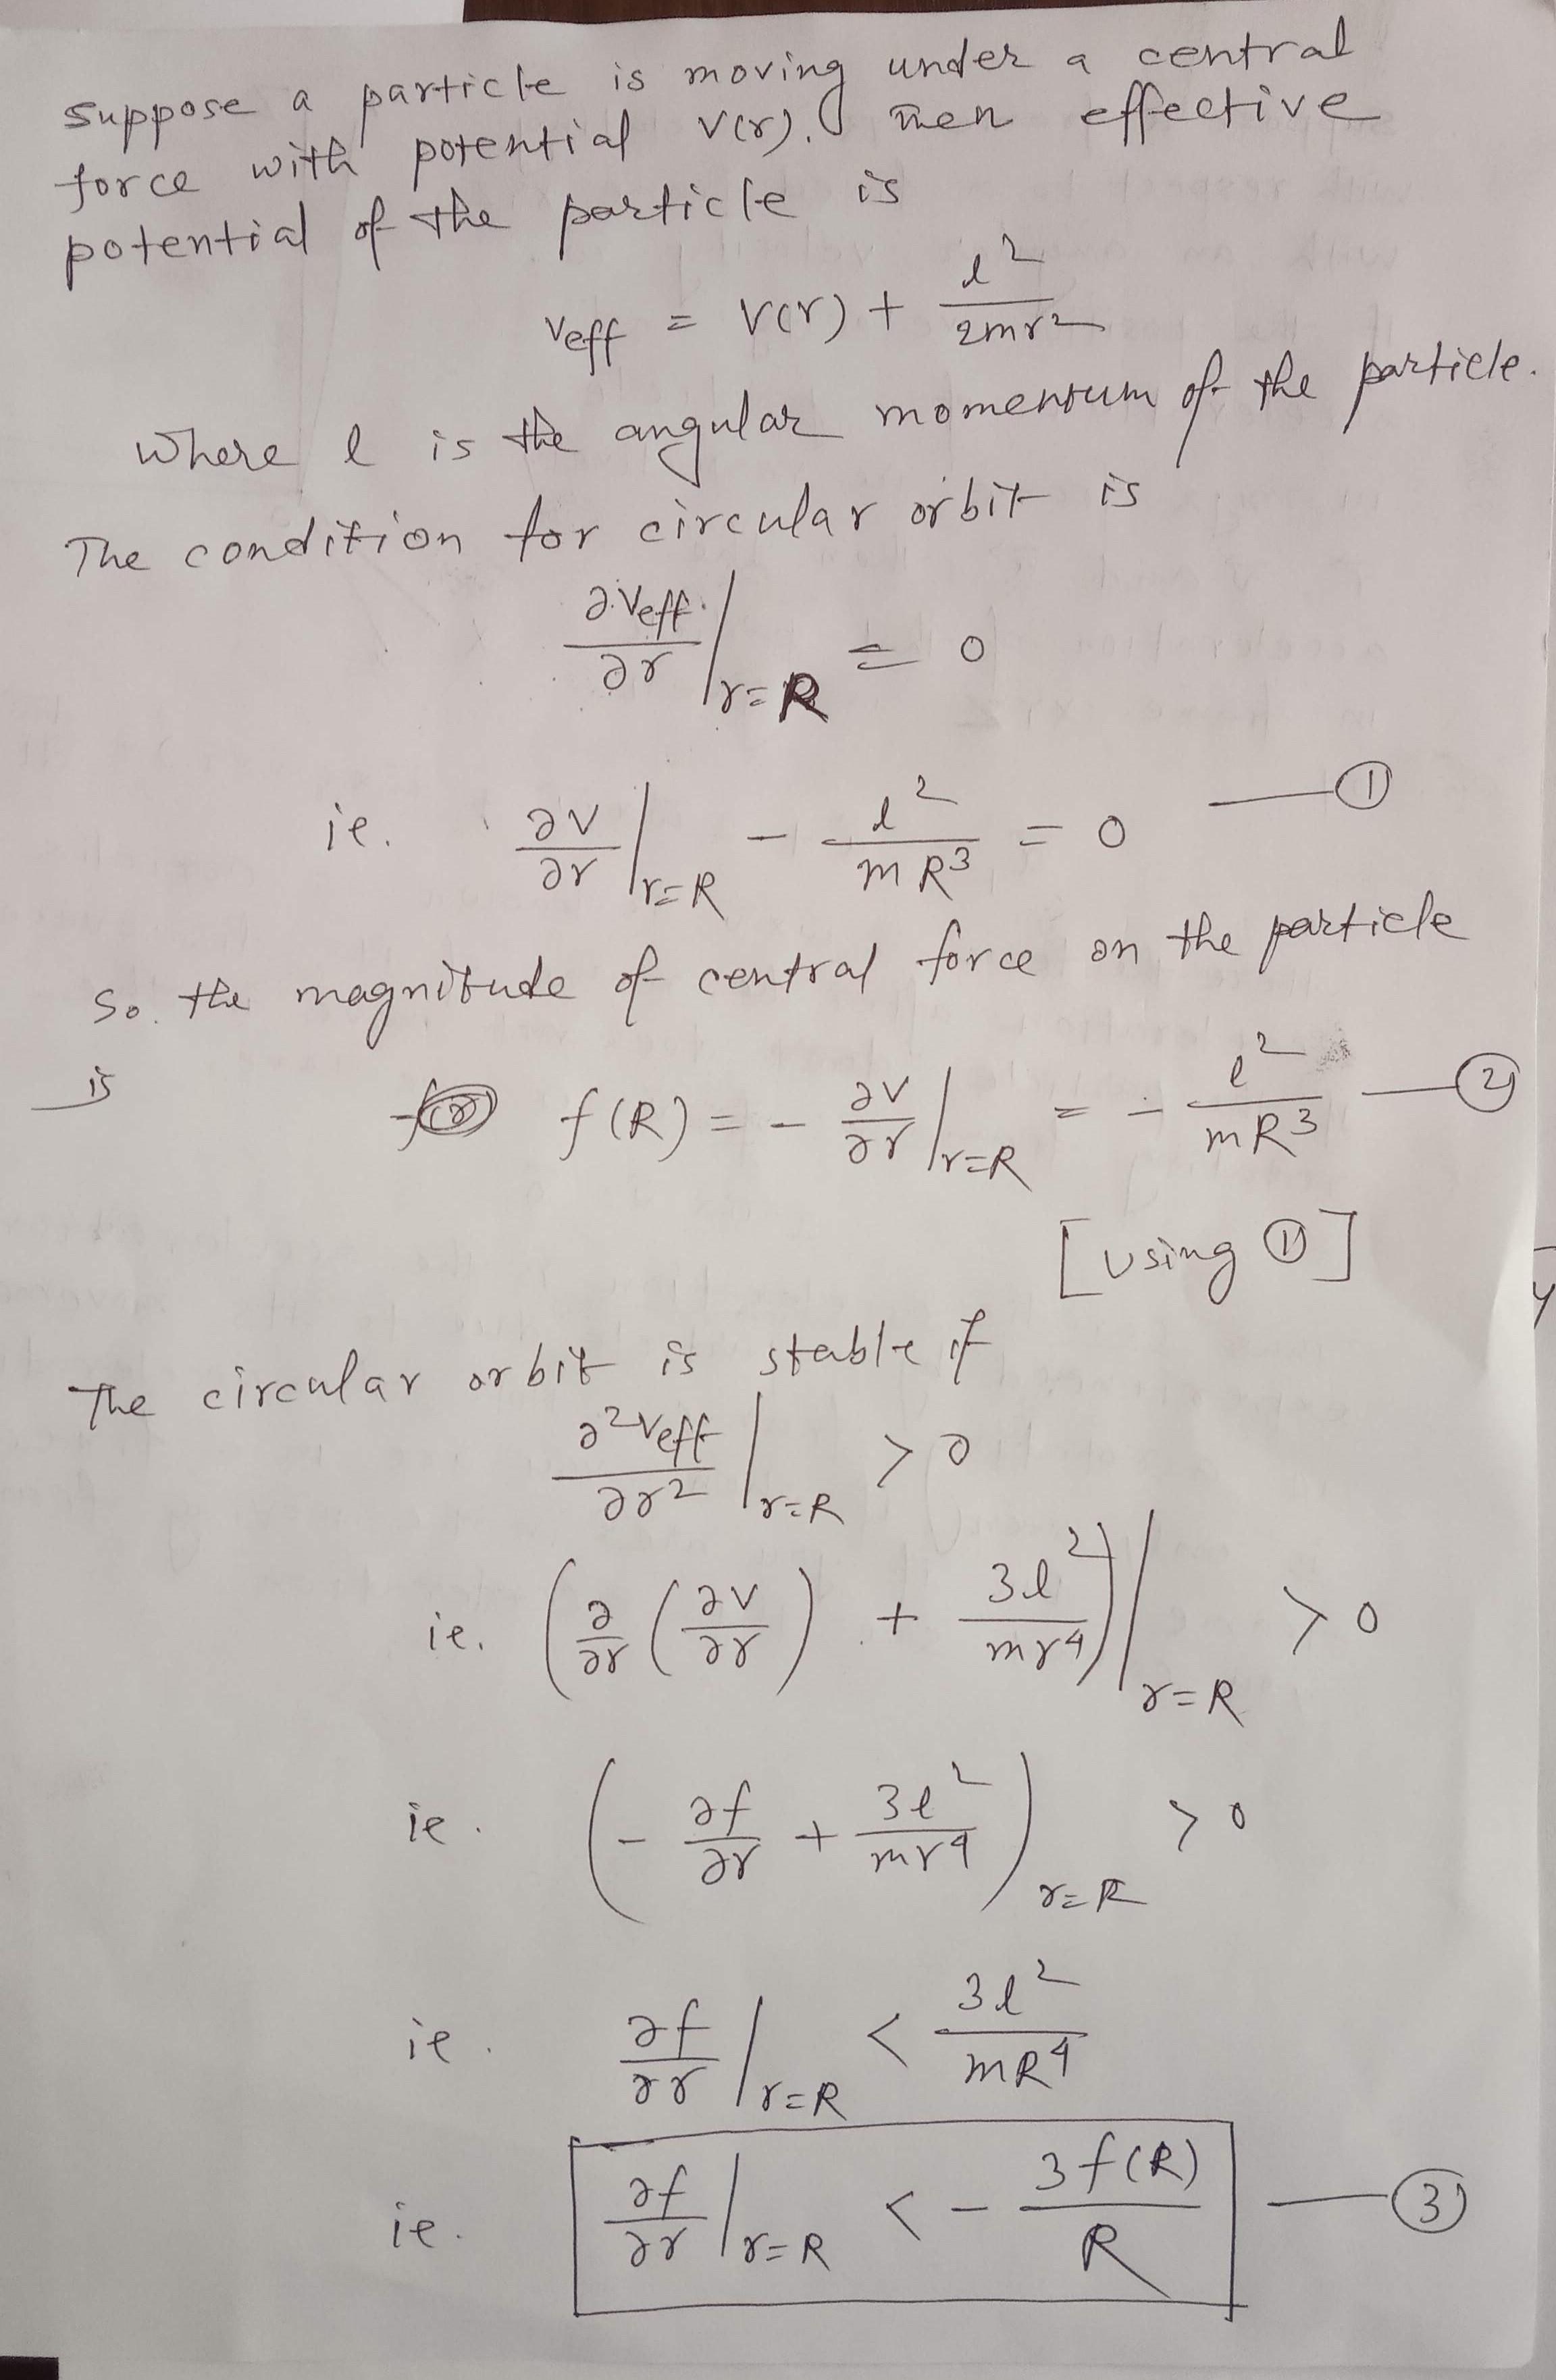 Suppose a particle is moving under a central
force with potential V(r). Then effective
potential of the particle is
Veff = V(r) + l²/2mr²
Where l is the angular momentum of the particle.
The condition for circular orbit is
∂Veff/∂r |r=R = 0
ie. ∂V/∂r |r=R - l²/mR³ = 0 — ①
So the magnitude of central force on the particle
is f(R) = - ∂V/∂r |r=R = - l²/mR³ — ②
[Using ①]
The circular orbit is stable if
∂²Veff/∂r² |r=R > 0
ie. (∂/∂r (∂V/∂r) + 3l²/mr⁴)|r=R > 0
ie. (- ∂f/∂r + 3l²/mr⁴)r=R > 0
ie. ∂f/∂r |r=R < 3l²/mR⁴
ie. ∂f/∂r |r=R < - 3f(R)/R — ③